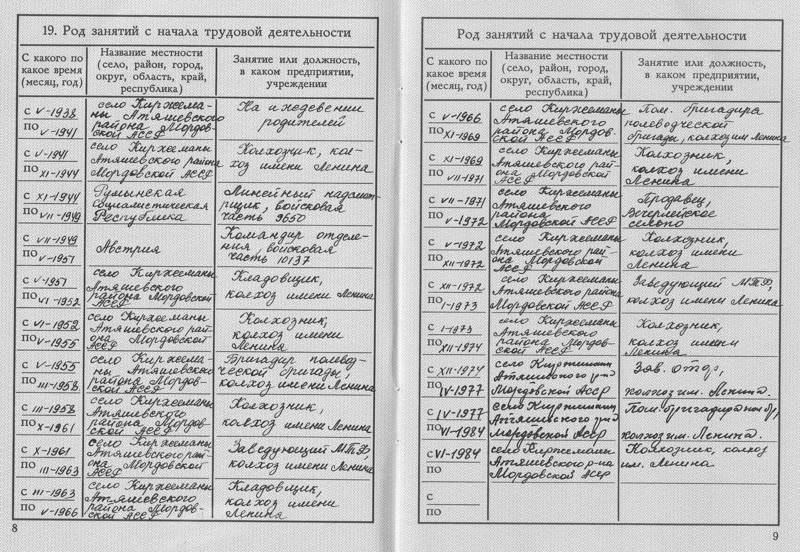 19. Род занятий с начала трудовой деятельности
С какого по
какое время
(месяц, год)
Название местности
(село, район, город,
округ, область, край,
республика)
Занятие или должность,
в каком предприятии,
учреждении
с V-1938
по V-1941
село Киржема-
ны Атяшевского
района Мордов-
ской АССР
На иждевении
родителей
с V-1941
по XI-1944
село Киржеманы
Атяшевского района
Мордовской АССР
Колхозник, кол-
хоз имени Ленина
с XI-1944
по VII-1949
Румынская
социалистическая
Республика
Линейный надсмот-
рщик, войсковая
часть 9650
с VII-1949
по V-1951
Австрия
Командир отделе-
ния, войсковая
часть 10137
с V-1951
по VI-1952
село Киржеманы
Атяшевского
района Мордовской
АССР
Кладовщик,
колхоз имени Ленина
с VI-1952
по V-1955
село Киржеманы
Атяшевского рай-
она Мордовской
АССР
Колхозник,
колхоз имени
Ленина
с V-1955
по III-1958
село Киржема-
ны Атяшевского
района Мордов-
ской АССР
Бригадир полевод-
ческой бригады,
колхоз имени Ленина
с III-1958
по X-1961
село Киржеманы
Атяшевского
района Мордов-
ской АССР
Колхозник,
колхоз имени
Ленина
с X-1961
по III-1963
село Киржеманы
Атяшевского рай-
она Мордовской
АССР
Заведующий МТФ,
колхоз имени Ленина
с III-1963
по V-1966
село Киржеманы
Атяшевского
района Мордов-
ской АССР
Кладовщик,
колхоз имени
Ленина
8
Род занятий с начала трудовой деятельности
С какого по
какое время
(месяц, год)
Название местности
(село, район, город,
округ, область, край,
республика)
Занятие или должность,
в каком предприятии,
учреждении
с V-1966
по XI-1969
село Киржеманы
Атяшевского
района Мордов-
ской АССР
Пом. бригадира
полеводческой
бригады, колхоз им Ленина
с XI-1969
по VII-1971
село Киржеманы
Атяшевского рай-
она Мордовской
АССР
Колхозник,
колхоз имени
Ленина
с VII-1971
по V-1972
село Киржеманы
Атяшевского
района
Мордовской АССР
Продавец,
сельпо
с V-1972
по XII-1972
село Киржеманы
Атяшевского рай-
она Мордовской
АССР
Колхозник,
колхоз имени
Ленина
с XII-1972
по I-1973
село Киржеманы
Атяшевского района
Мордовской АССР
Заведующий МТФ,
колхоз имени Ленина
с I-1973
по XII-1974
село Киржеманы
Атяшевского
района Мордов-
ской АССР
Колхозник,
колхоз имени
Ленина
с XII-1974
по IV-1977
село Киржеманы
Атяшевского
Мордовской АССР
Зав.
колхоз им. Ленина.
с IV-1977
по VI-1984
село Киржеманы
Атяшевского
Мордовской АССР
Пом. бригадира
колхоз им. Ленина.
с VI-1984
по
село Киржеманы
Атяшевского р-на
Мордовской АССР
Колхозник, колхоз
им. Ленина
с
по
9